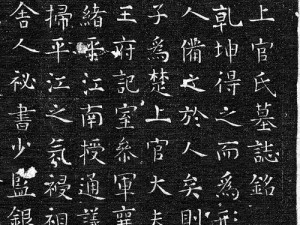 上官氏墓誌銘
乾坤得之而爲形
人備之於人矣則
子爲楚上官大夫
王府記室參軍襄
緒平江南授通議
掃平江之氛祲祖
舍人祕書少監銀